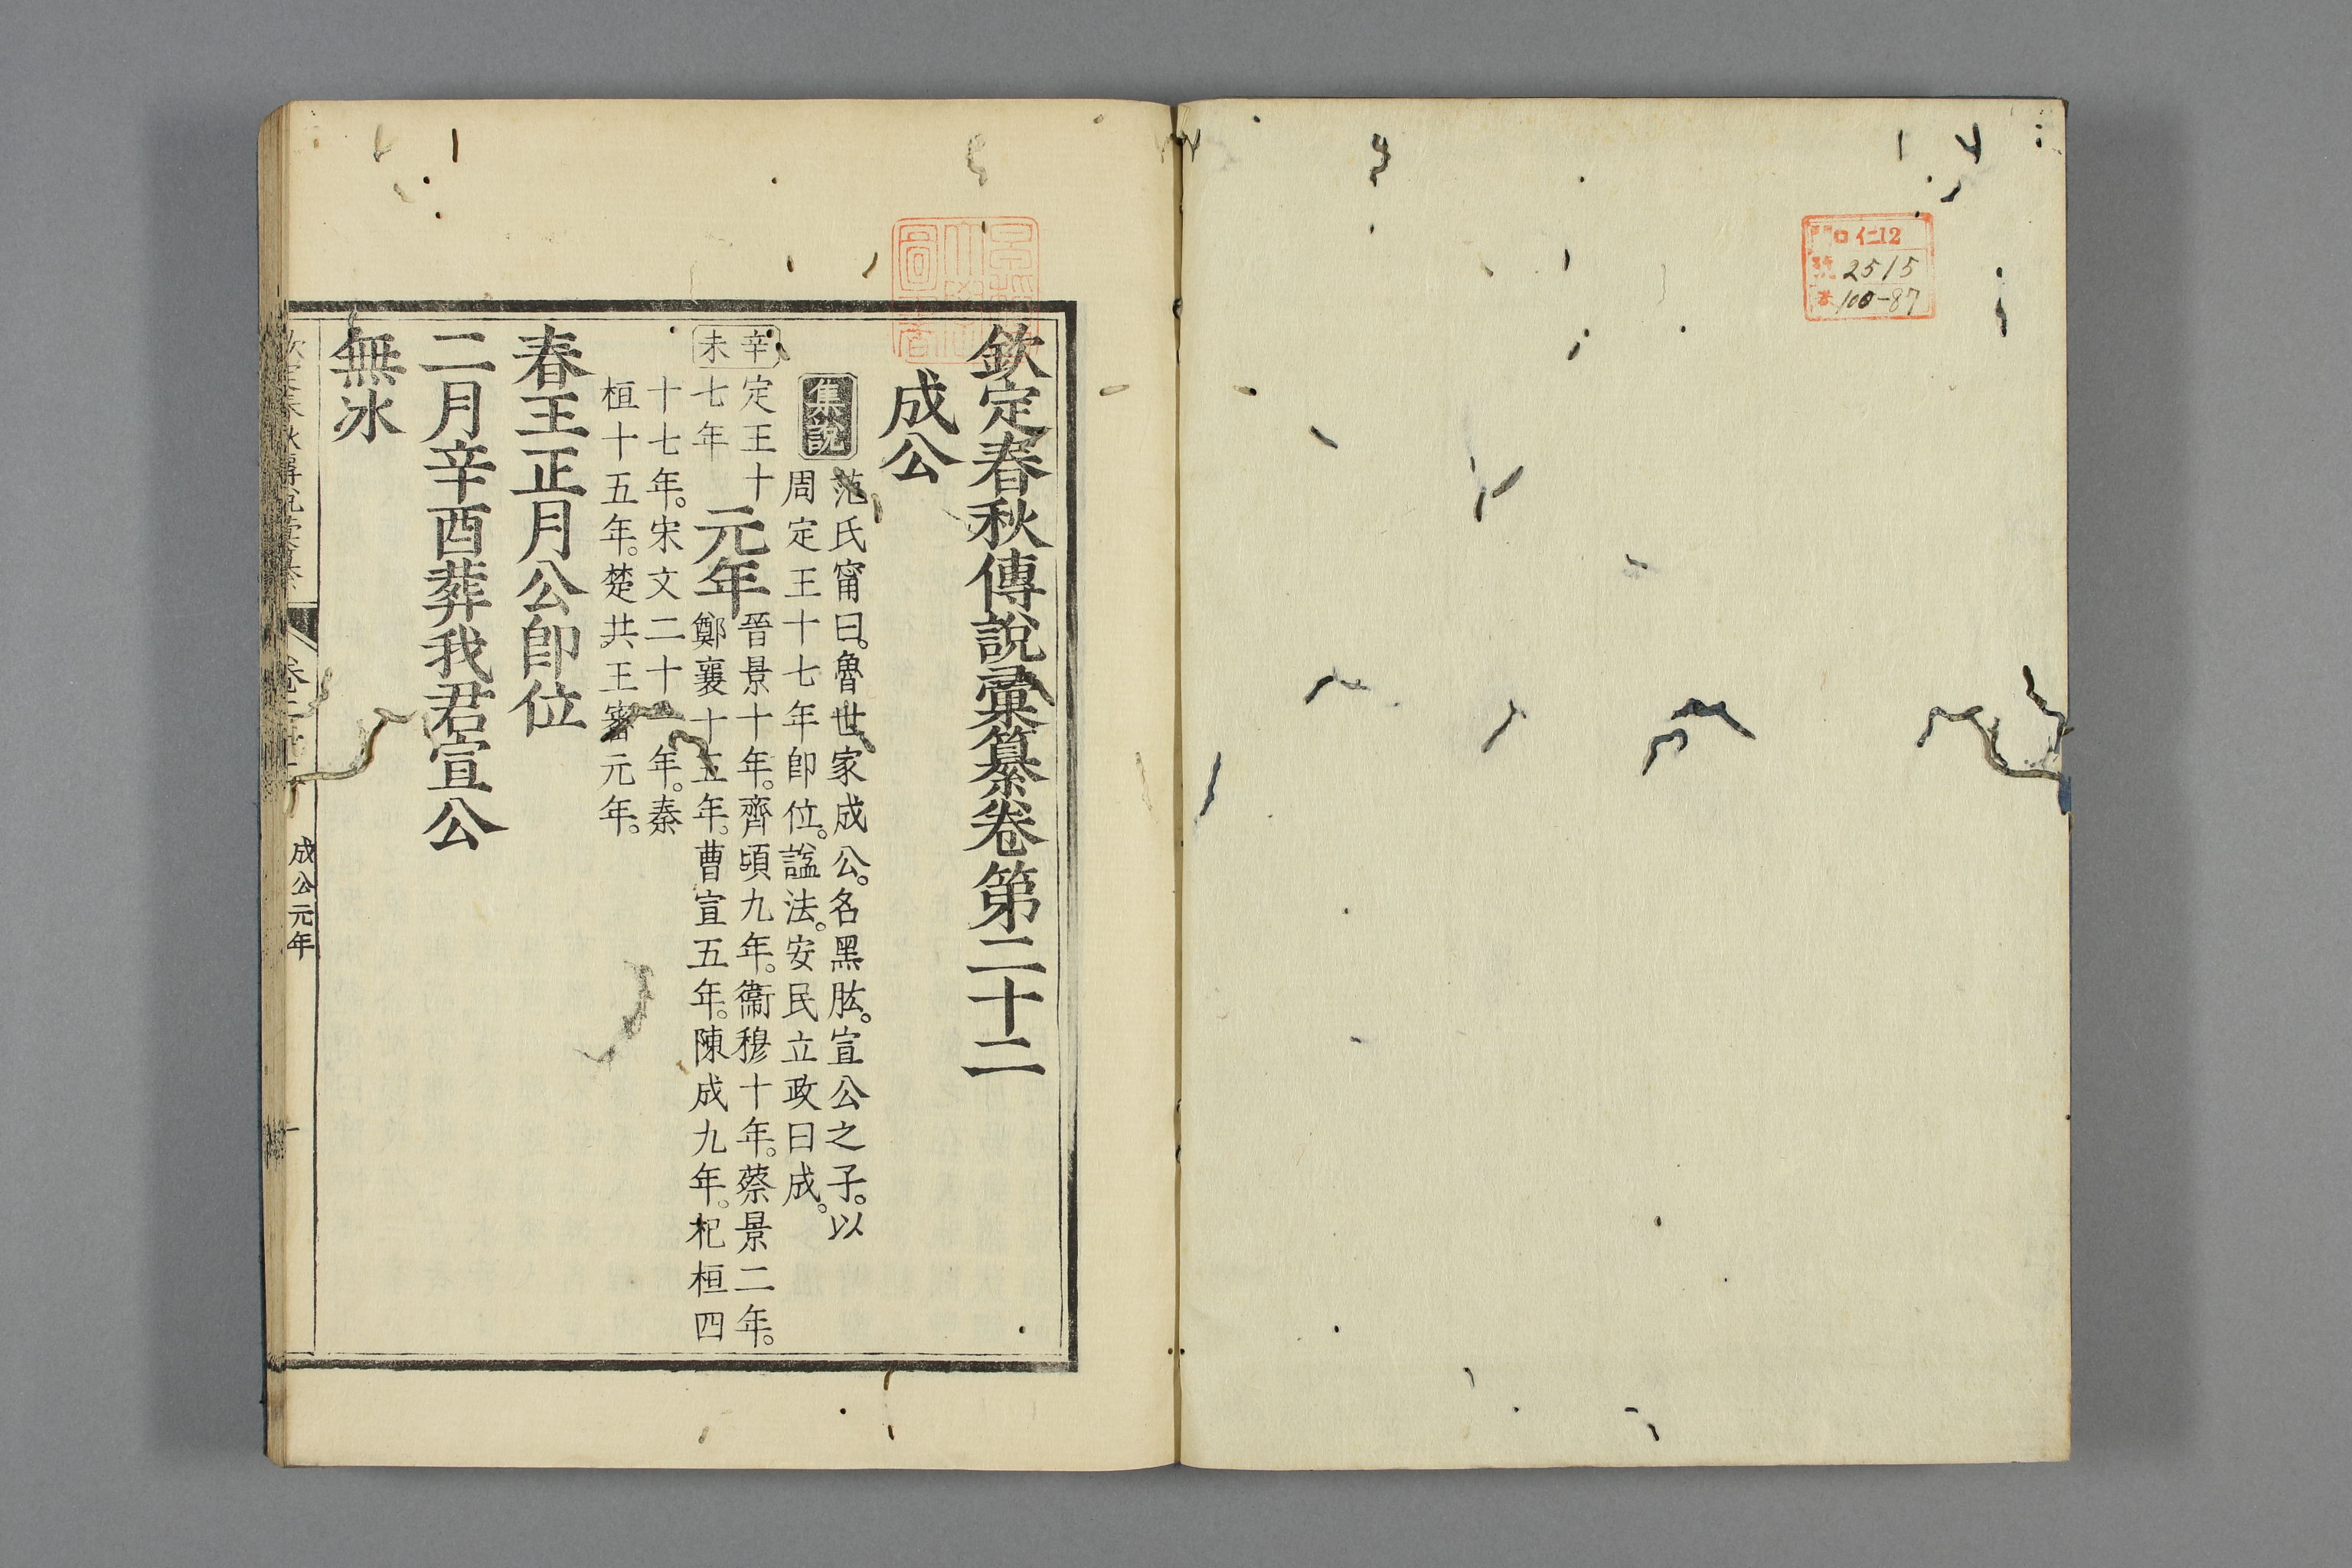 仁12
2515
100-87
欽定春秋傳說彙纂卷第二十二
成公
集說
范氏甯曰。魯世家成公。名黑肱。宣公之子。以
周定王十七年卽位。諡法。安民立政曰成。
辛未
定王十
七年
元年
晉景十年。齊頃九年。衞穆十年。蔡景二年。
鄭襄十五年。曹宣五年。陳成九年。杞桓四
十七年。宋文二十一年。秦
桓十五年。楚共王審元年。
春王正月公卽位
二月辛酉葬我君宣公
無冰
成公元年
一